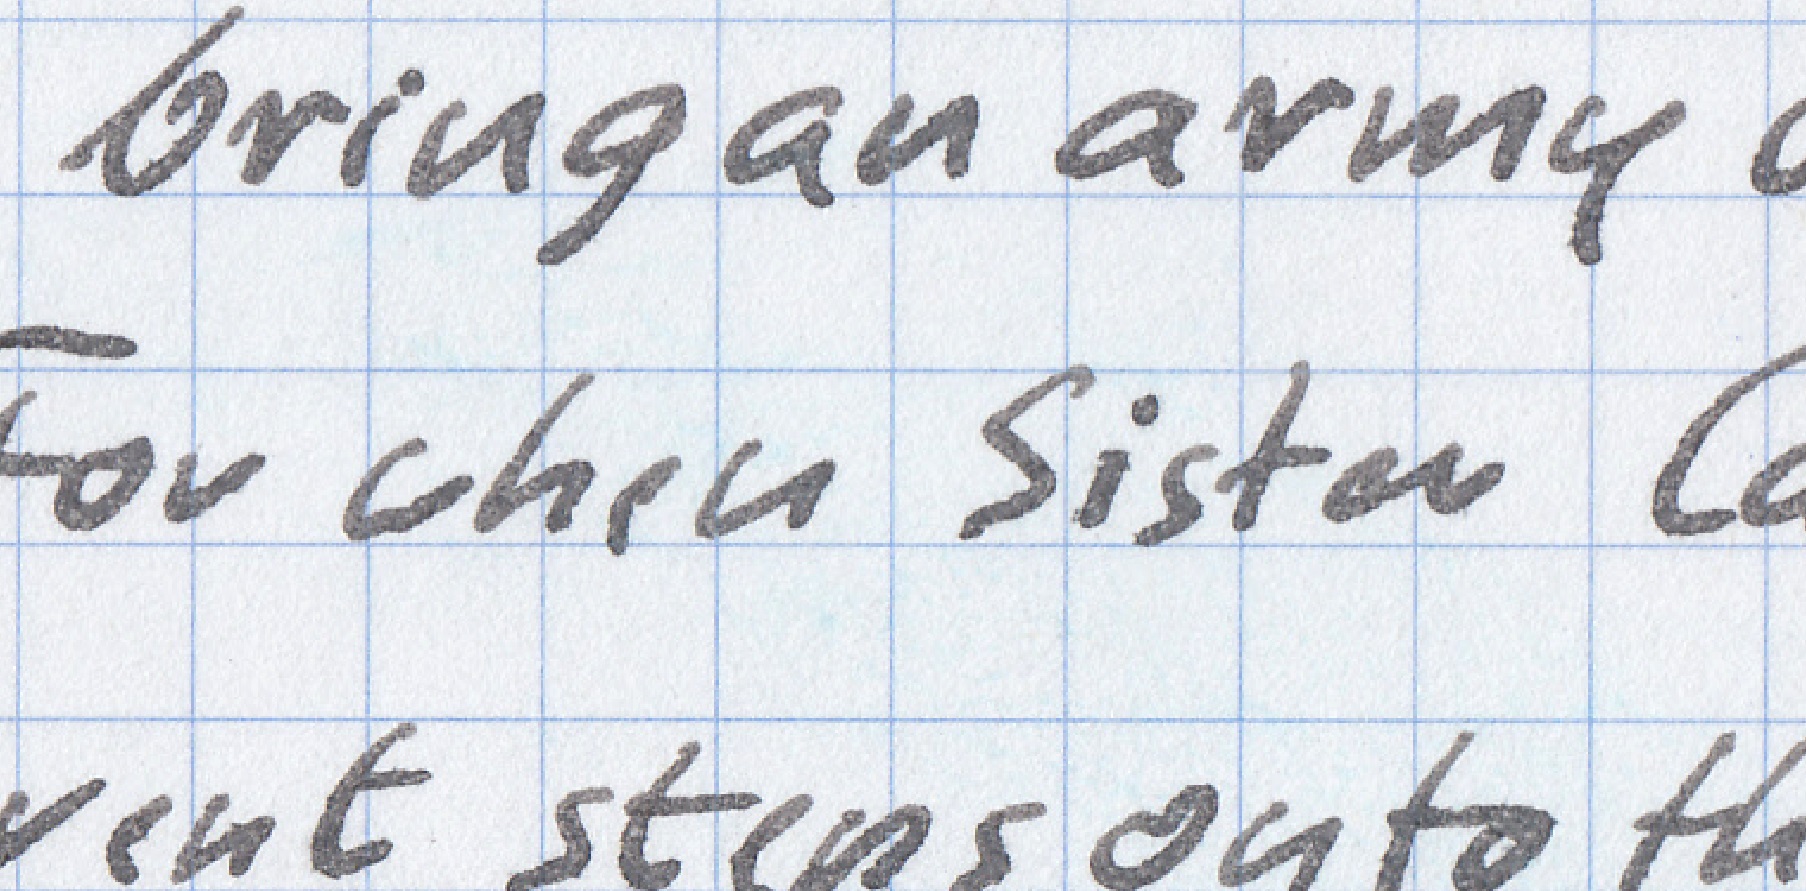 bring an army
For when Sister Ca
vent steps onto th